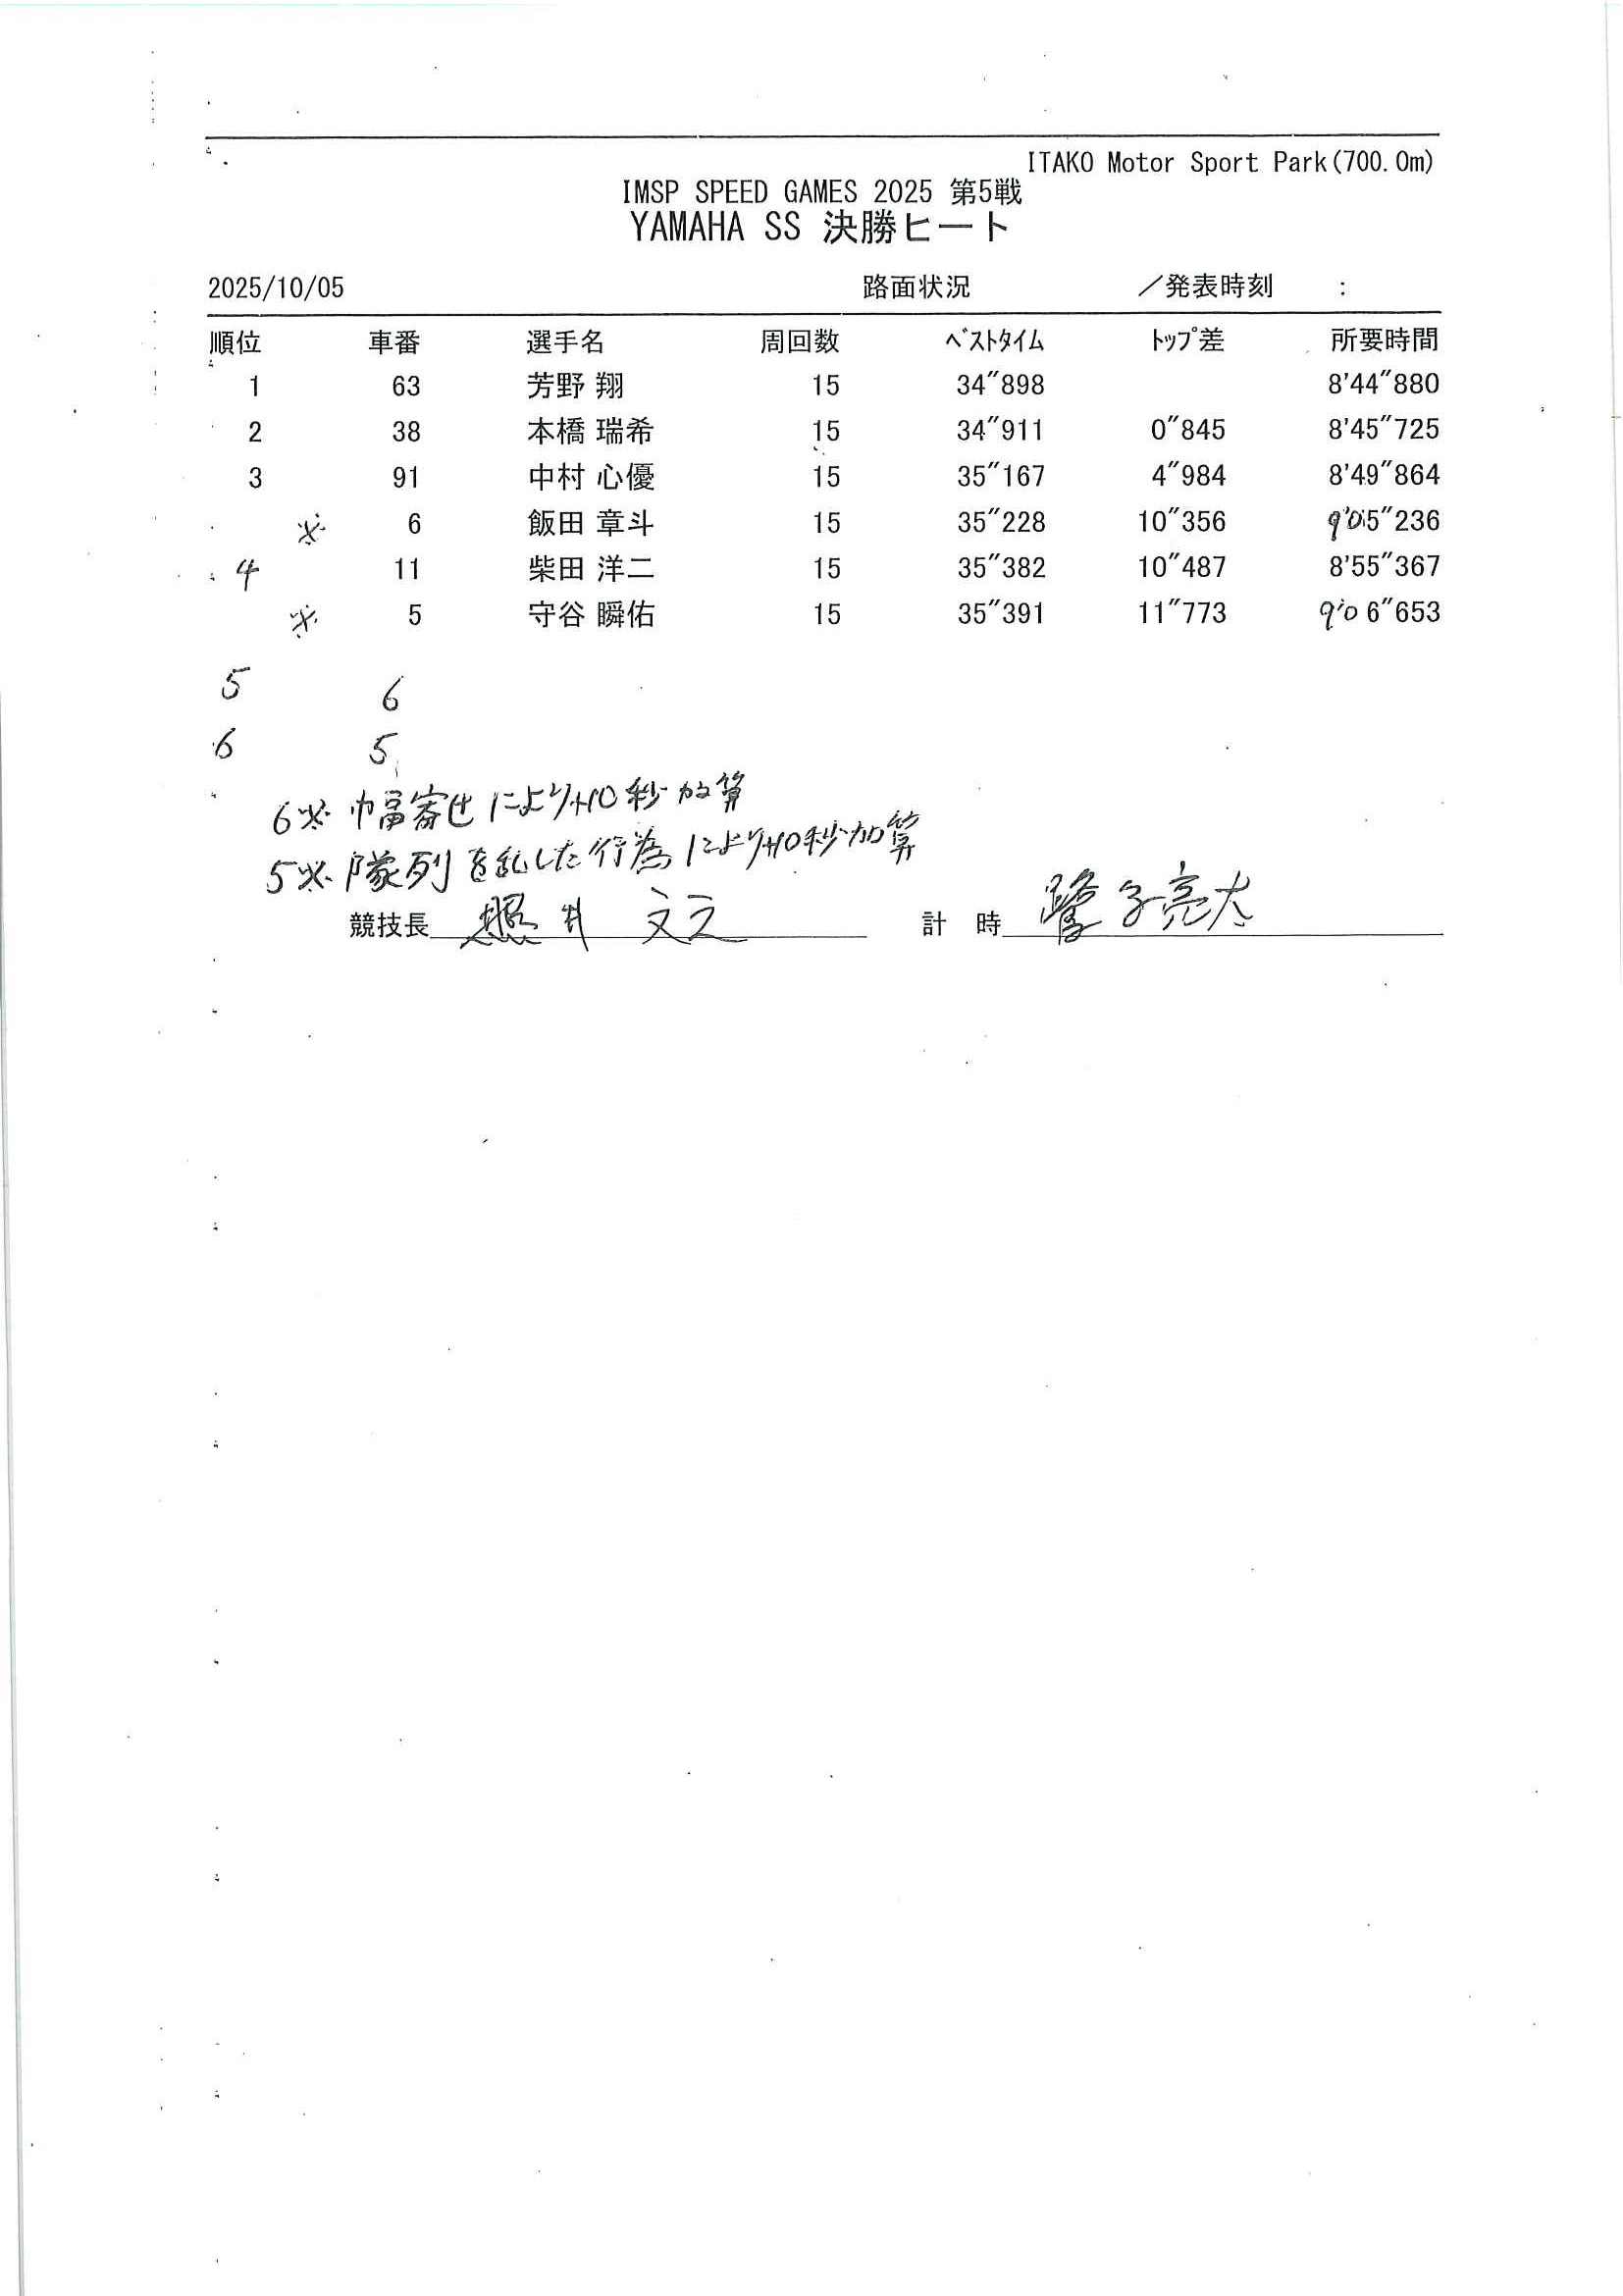 ITAKO Motor Sport Park(700.0m)
IMSP SPEED GAMES 2025 第5戦
YAMAHA SS 決勝ヒート
2025/10/05 路面状況 ／発表時刻 :
順位 車番 選手名 周回数 ﾍﾞｽﾄﾀｲﾑ ﾄｯﾌﾟ差 所要時間
1 63 芳野 翔 15 34"898 8'44"880
2 38 本橋 瑞希 15 34"911 0"845 8'45"725
3 91 中村 心優 15 35"167 4"984 8'49"864
※ 6 飯田 章斗 15 35"228 10"356 9'05"236
4 11 柴田 洋二 15 35"382 10"487 8'55"367
※ 5 守谷 瞬佑 15 35"391 11"773 9'06"653
5 6
6 5
6※ 巾畐寄せにより+10秒加算
5※ 隊列を乱した行為により+10秒加算
競技長 照井 文 計 時 子亮太